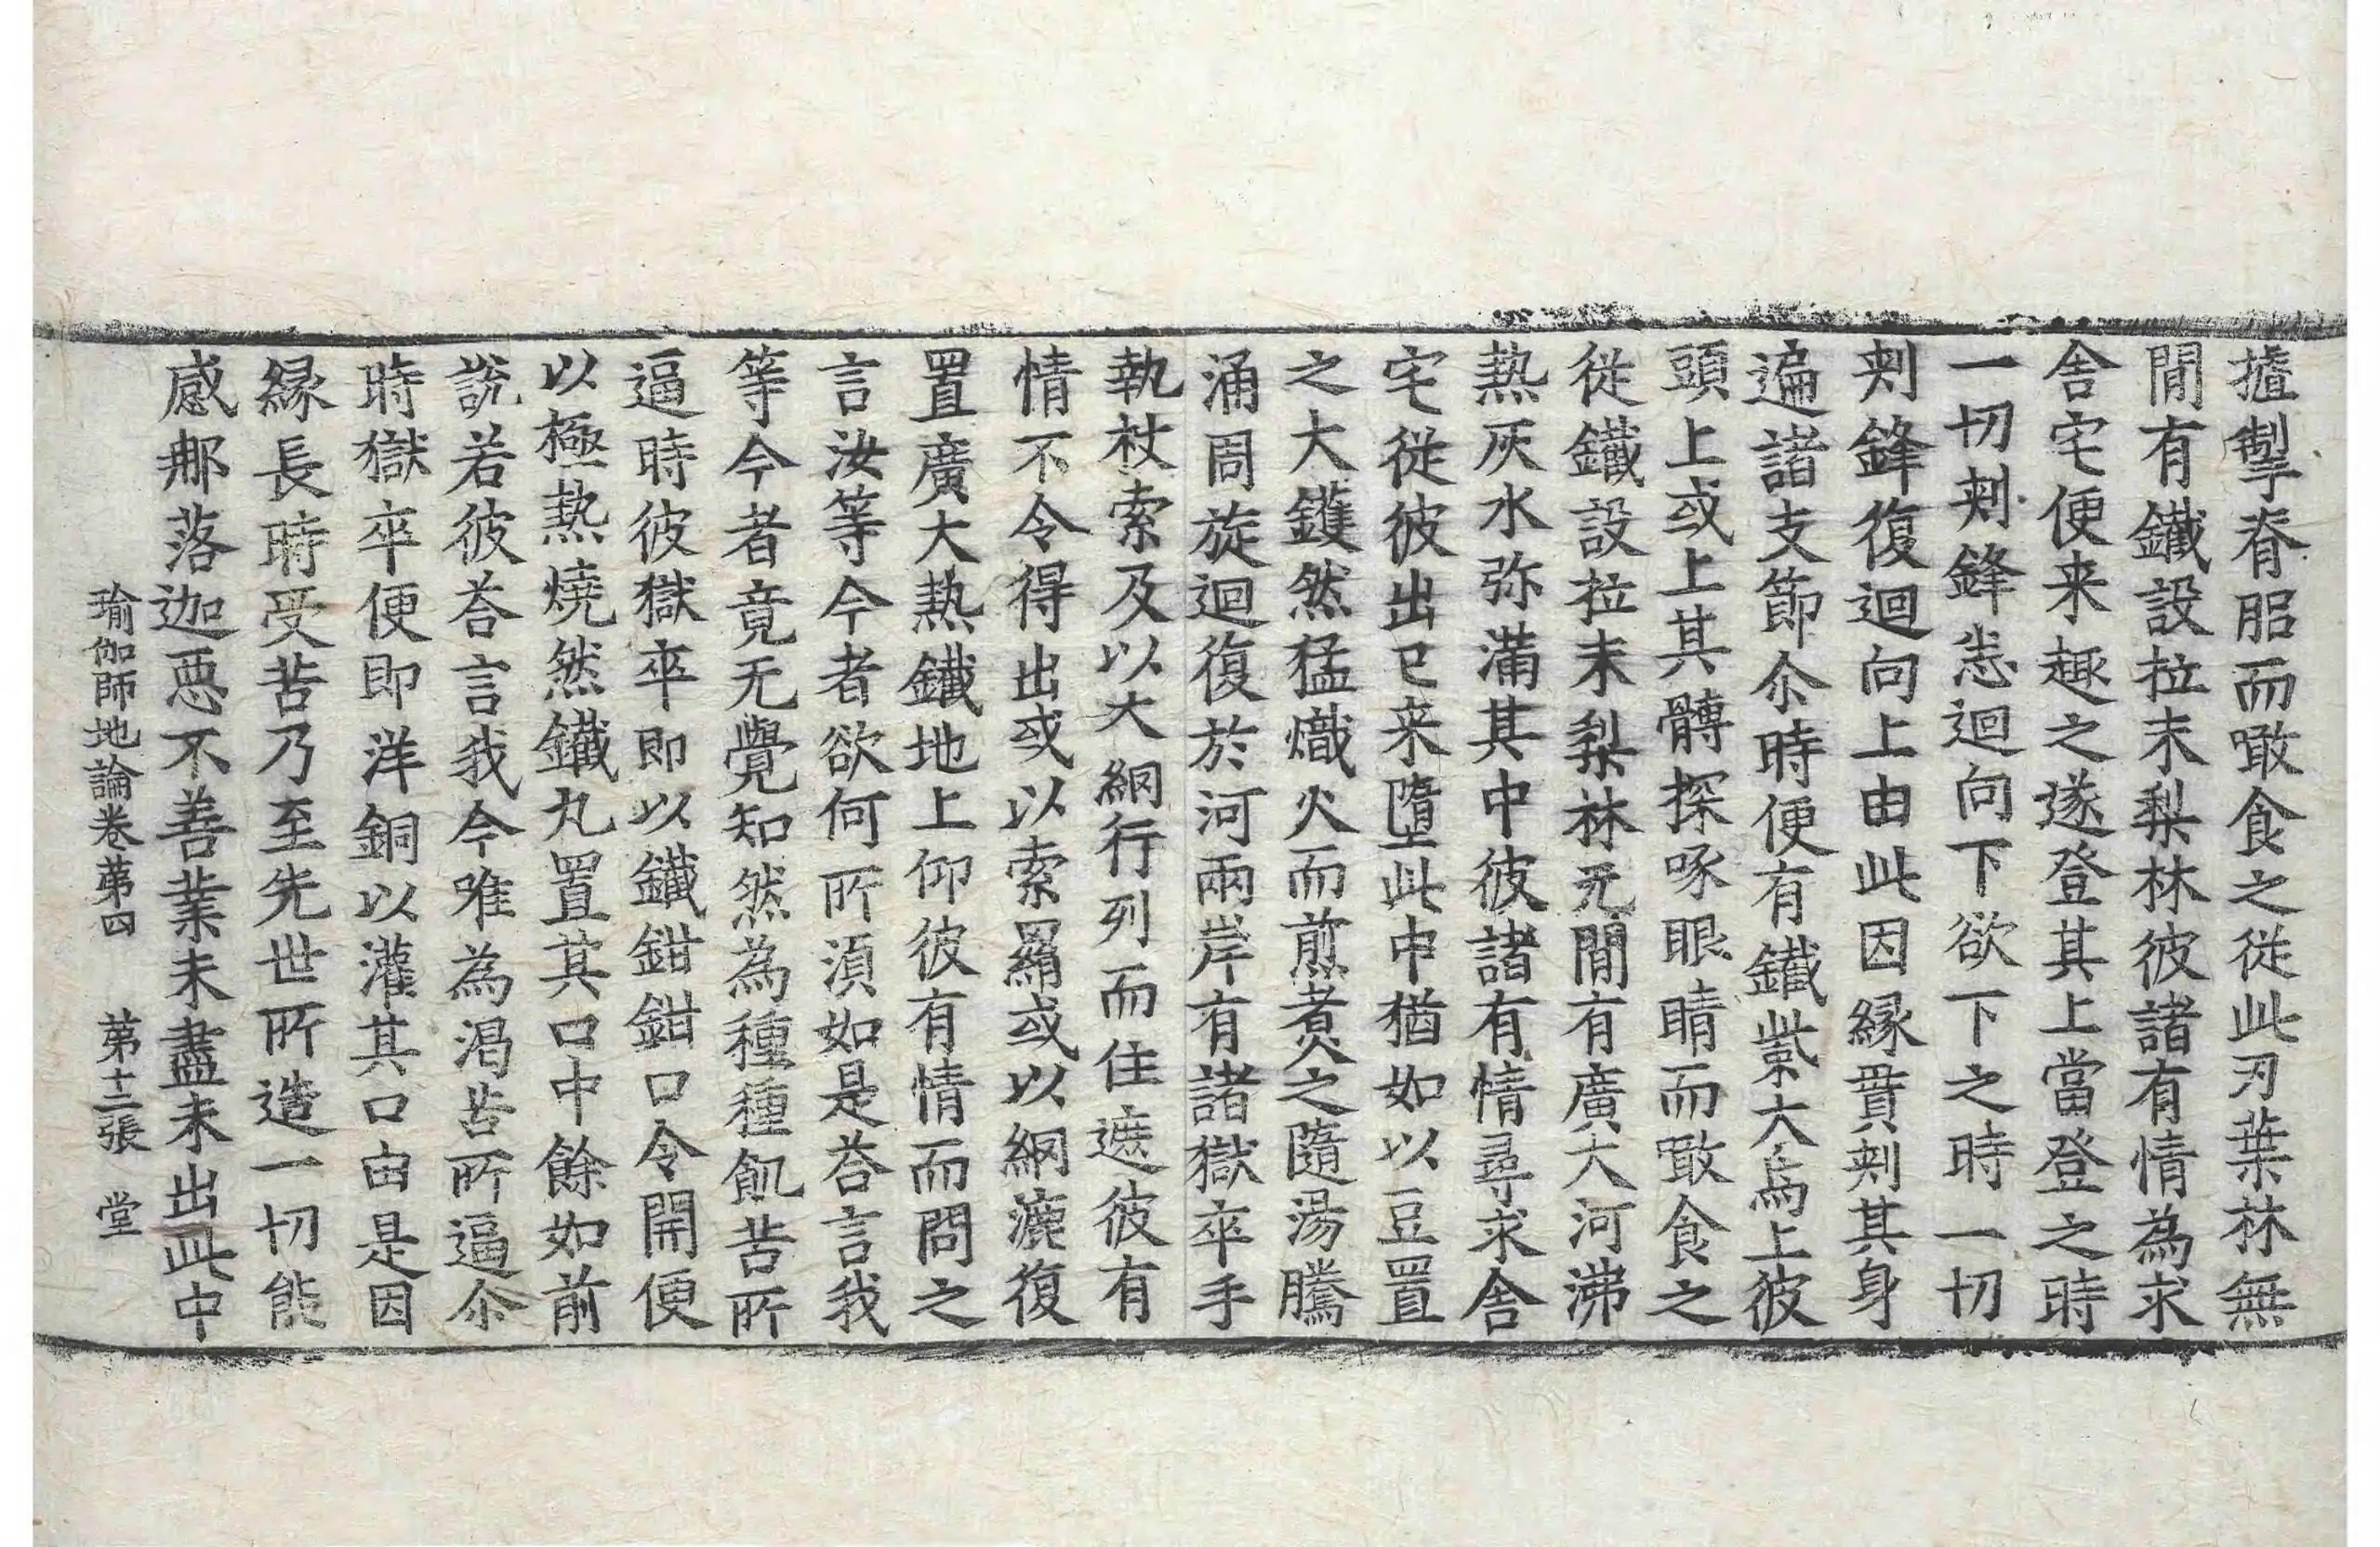 摣掣脊䏢而噉食之從此刃葉林無
閒有鐵設拉末梨林彼諸有情為求
舍宅便来趣之遂登其上當登之時
一切刾鋒悉迴向下欲下之時一切
刾鋒復迴向上由此因縁貫刾其身
遍諸支節尒時便有鐵㭰大烏上彼
頭上或上其髆探啄眼睛而噉食之
從鐵設拉末梨林无閒有廣大河沸
熱灰水弥滿其中彼諸有情尋求舍
宅從彼出已来墮此中猶如以豆置
之大鑊然猛熾火而煎煮之隨湯騰
涌周旋迴復於河兩岸有諸獄卒手
執杖索及以大網行列而住遮彼有
情不令得出或以索羂或以網漉復
置廣大熱鐵地上仰彼有情而問之
言汝等今者欲何所湏如是荅言我
等今者竟无覺知然為種種飢苦所
逼時彼獄卒即以鐵鉗鉗口令開便
以極熱燒然鐵丸置其口中餘如前
說若彼荅言我今唯為渴苦所逼尒
時獄卒便即洋銅以灌其口由是因
縁長時受苦乃至先世所造一切能
感那落迦惡不善業未盡未出此中
瑜伽師地論卷苐四 苐十二張 堂